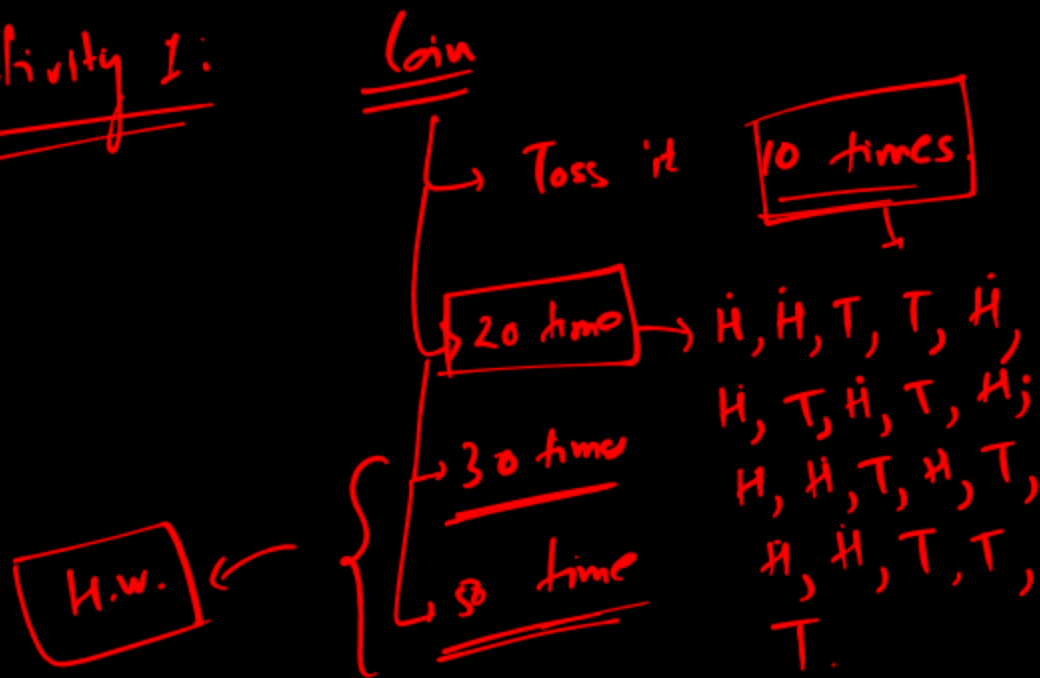 tivity I:
Coin
Toss it
10 times.
20 time
H, H, T, T, H,
H, T, H, T, H;
H, H, T, H, T,
H, H, T, T,
T.
30 times
50 time
H.W.